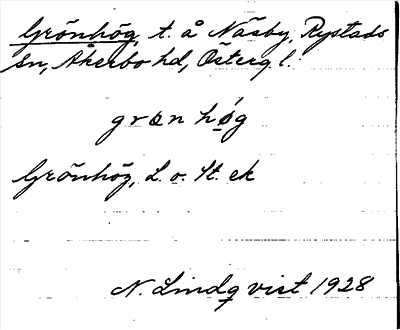 Grönhög, t. å Näsby, Rystads
sn, Åkerbo hd, Österg. l.
grœn hǿ̣g
Grönhög, L. o. St. ek
N. Lindqvist 1928